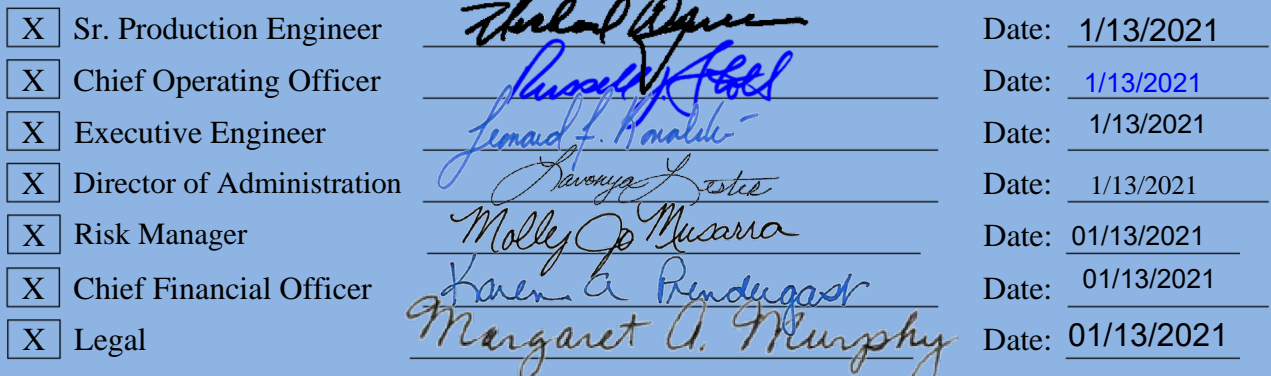 X Sr. Production Engineer Date: 1/13/2021
X Chief Operating Officer Russell J. Date: 1/13/2021
X Executive Engineer Date: 1/13/2021
X Director of Administration Lavonya Lester Date: 1/13/2021
X Risk Manager Molly Jo Musarra Date: 01/13/2021
X Chief Financial Officer Karen A Prendergast Date: 01/13/2021
X Legal Margaret A. Murphy Date: 01/13/2021